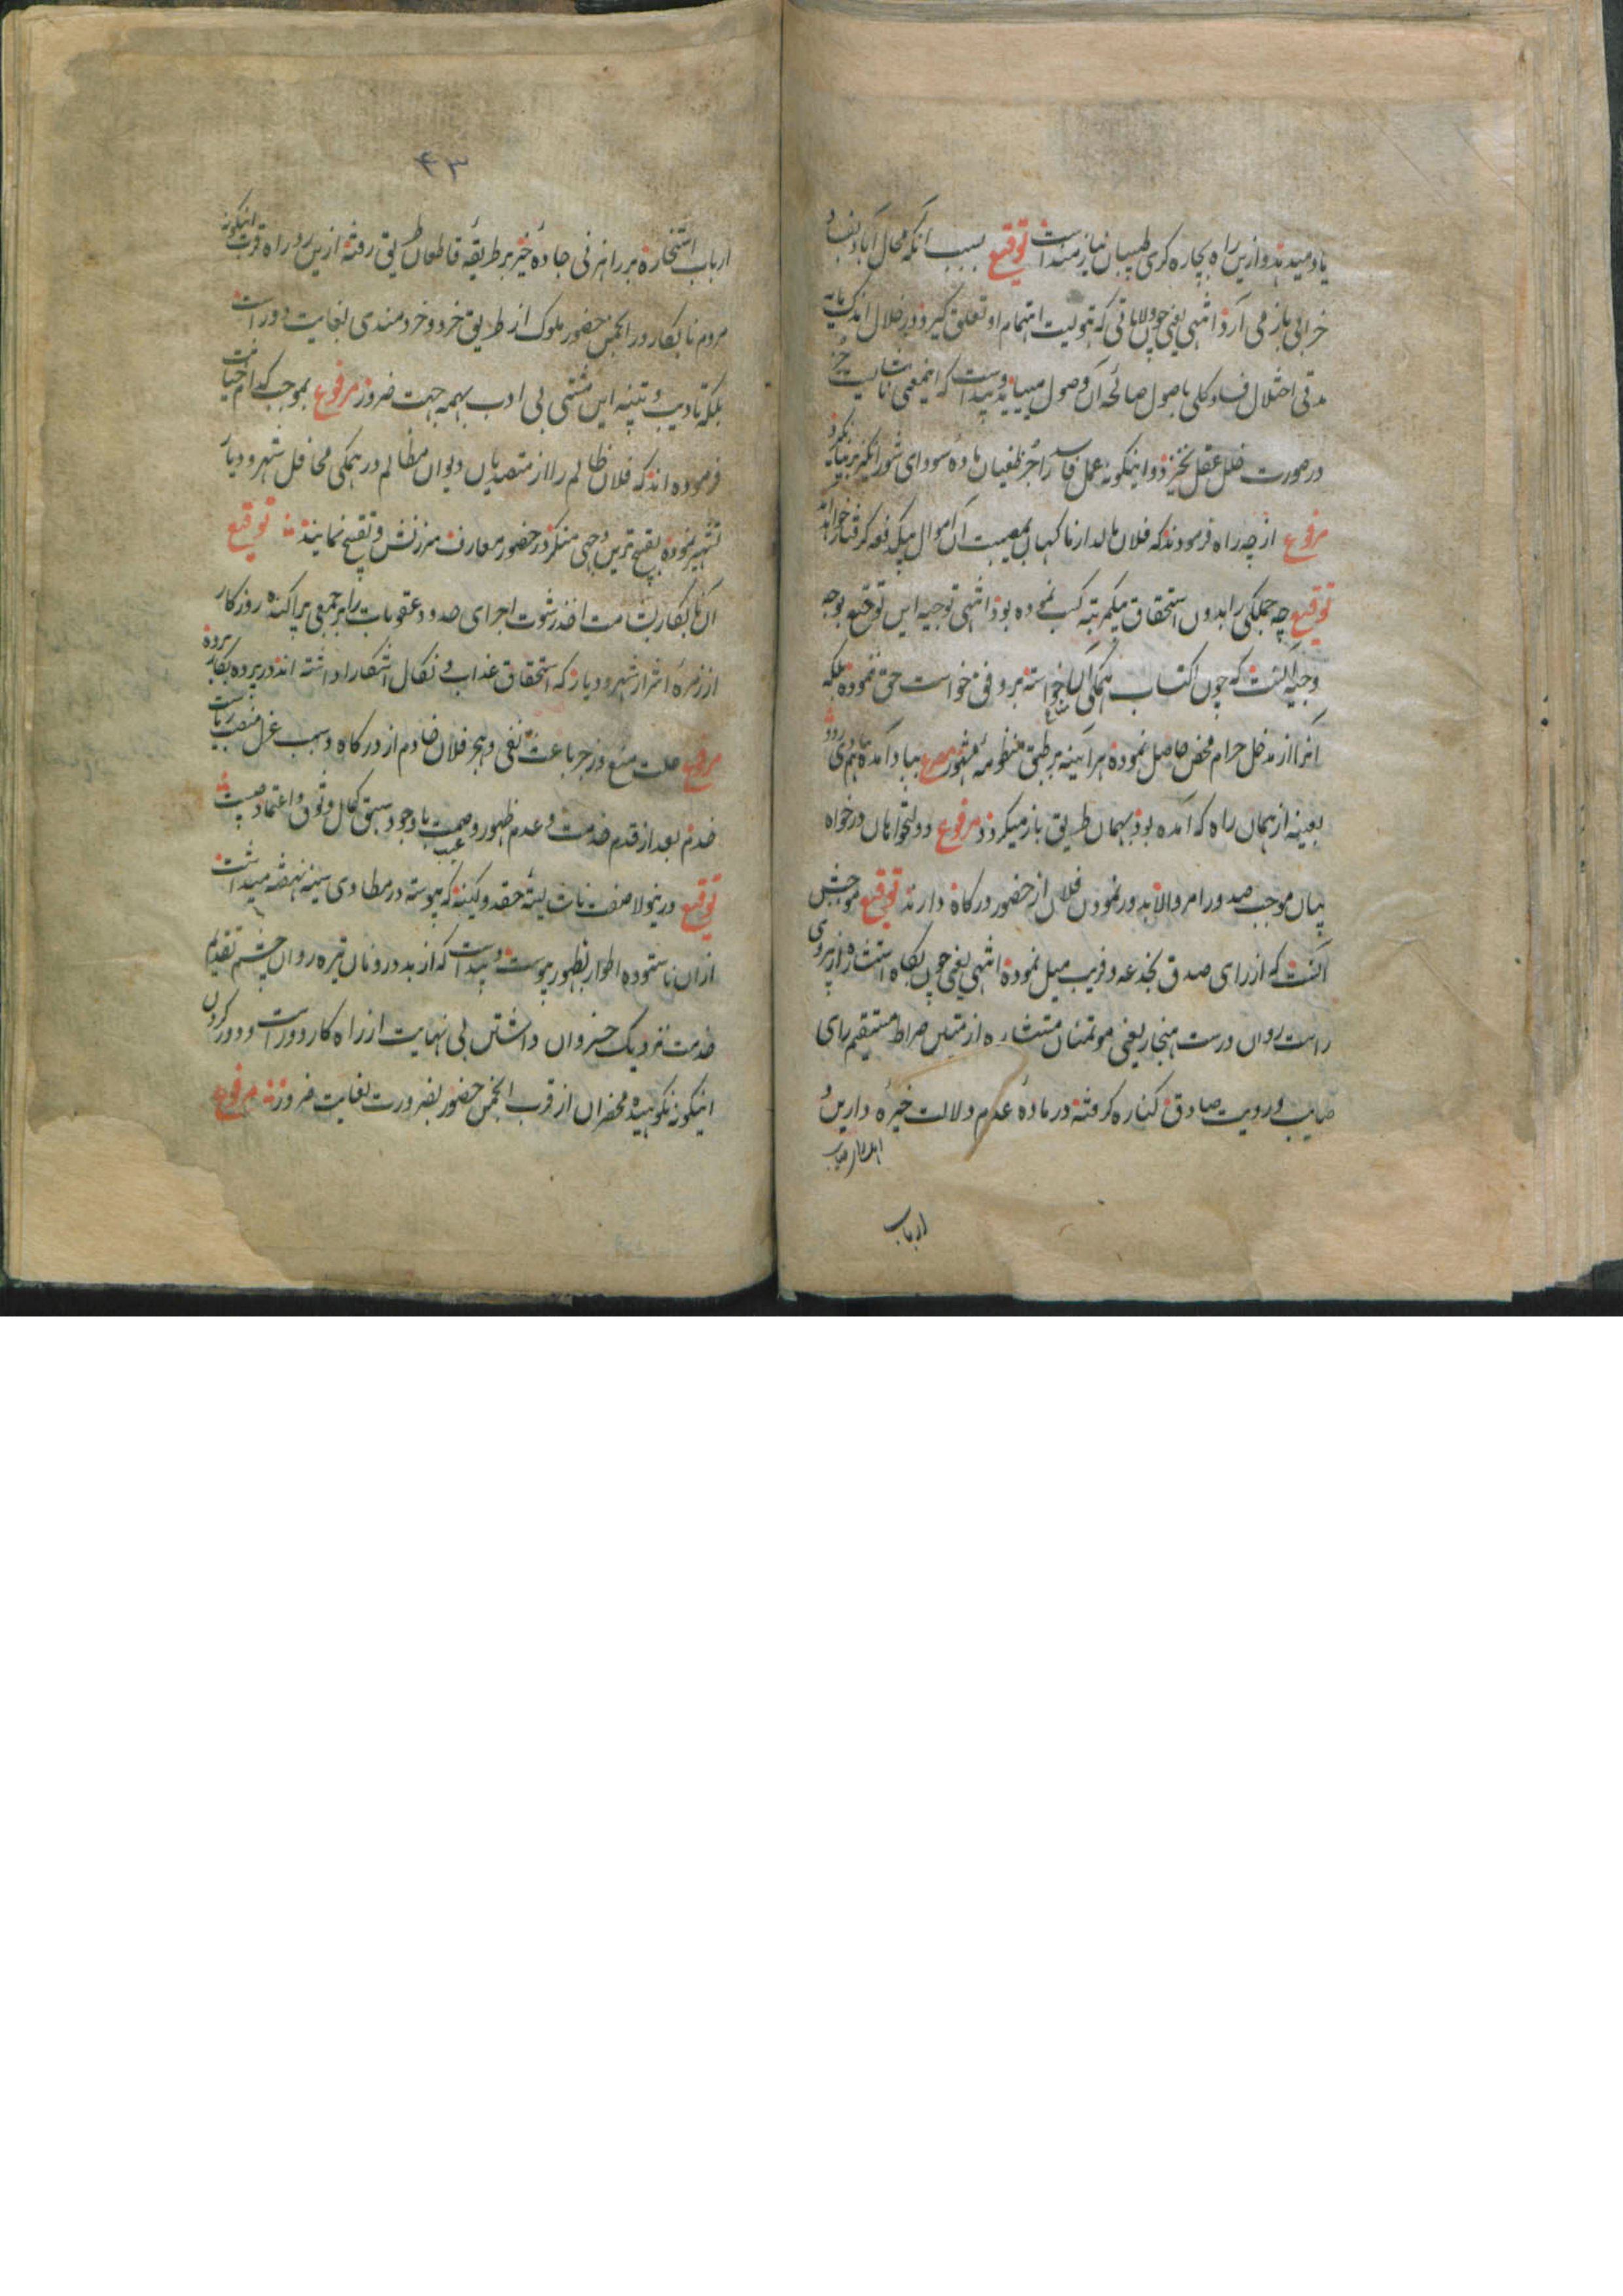 یاد میدهد و ازین راه بچاره گری طبیبان نیازمند است توقیع بسبب آنکه محال آباد بقید
خرابی باز می آرد انتهی یعنی چون ولایاتی که بتولیت اهتمام او تعلق گیرد در خلال اندک مایه
مدتی اختلال فساد کلی باصول صالحه آن وصول مییابد و پیداست که اینمعنی ناشایست جز
در صورت خلل عقل نخیزد و اینگونه عمل فاسد را جز طغیان ماده سودای شور انگیز بر نیانگیزد
مرفوع از چه راه فرمودند که فلان مالدار ناگهان بمصیبت آن اموال بیکدفعه گرفتار خواهد
توقیع چه جملگی را بدون استحقاق بیکمرتبه کسب نموده بود انتهی توجیه این توقیع بوجه
وجیه آنست که چون اکتساب همگی آن خواسته بر وفق خواست حق ننموده بلکه
آنرا از مدخل حرام محض حاصل نموده هرآئینه بر طبق منظومه مشهور مصرع بباد آمده هم
بعینه از همان راه که آمده بود بهمان طریق باز میگردد مرفوع دولتخواهان درخواه
بیان موجب صدور امر والا بدور نمودن فلان از حضور درگاه دارند توقیع موجبش
آنست که از رای صدق بخدعه و فریب میل نموده انتهی یعنی چون بگاه استشاره از پیروی
راست روان درست هنجار یعنی موتمنان مستشار ه از متین صراط مستقیم رای
صایب و رویت صادق کناره گرفته در ماده عدم دلالت خیره دارین و
ارباب
۴۳
ارباب استخاره بر راهزنی جاده خیر بر طریقه قاطعان طریق رفته ازین رو راه قربت اینگونه
مردم نابکار در انجمن حضور ملوک از طریق خرد و خردمندی بغایت دور است
بلکه تادیب و تنبیه این مشتی بی ادب بهمه جهت ضرور مرفوع بموجب کدام خیانت
فرموده اند که فلان ظالم را از متصدیان دیوان مظالم در همگی محافل شهر و دیار
تشهیر نموده بقبیح ترین وجهی منکر در حضور معارف سرزنش و تقبیح نمایند توقیع
آن نابکار بشامت اخذ رشوت اجرای حدود عقوبات را بر جمعی پراکنده روزگار
از زمره اشرار شهر و دیار که استحقاق عذاب و نکال آشکارا داشته اند در پرده بکار برده
مرفوع علت منع و زجر باعث نفی و هجر فلان خادم از درگاه و سبب عزل منصب ریاست
خدم بعد از قدم خدمت و عدم ظهور وصمت عیب با وجود سبق کمال وثوق و اعتماد چیست
توقیع درینولا صفت ناشایسته حقد و کینه که پیوسته در مطاوی سینه نهفته میداشت
ازان ناستوده اطوار بظهور پیوست و پیداست که از بد درونان تیره روان چشم تقدیم
خدمت نزدیک خسروان داشتن بی نهایت از راه کار دور است و دور کردن
اینگونه نکوهیده محضران از قرب انجمن حضور بضرورت بغایت ضرور مرفوع